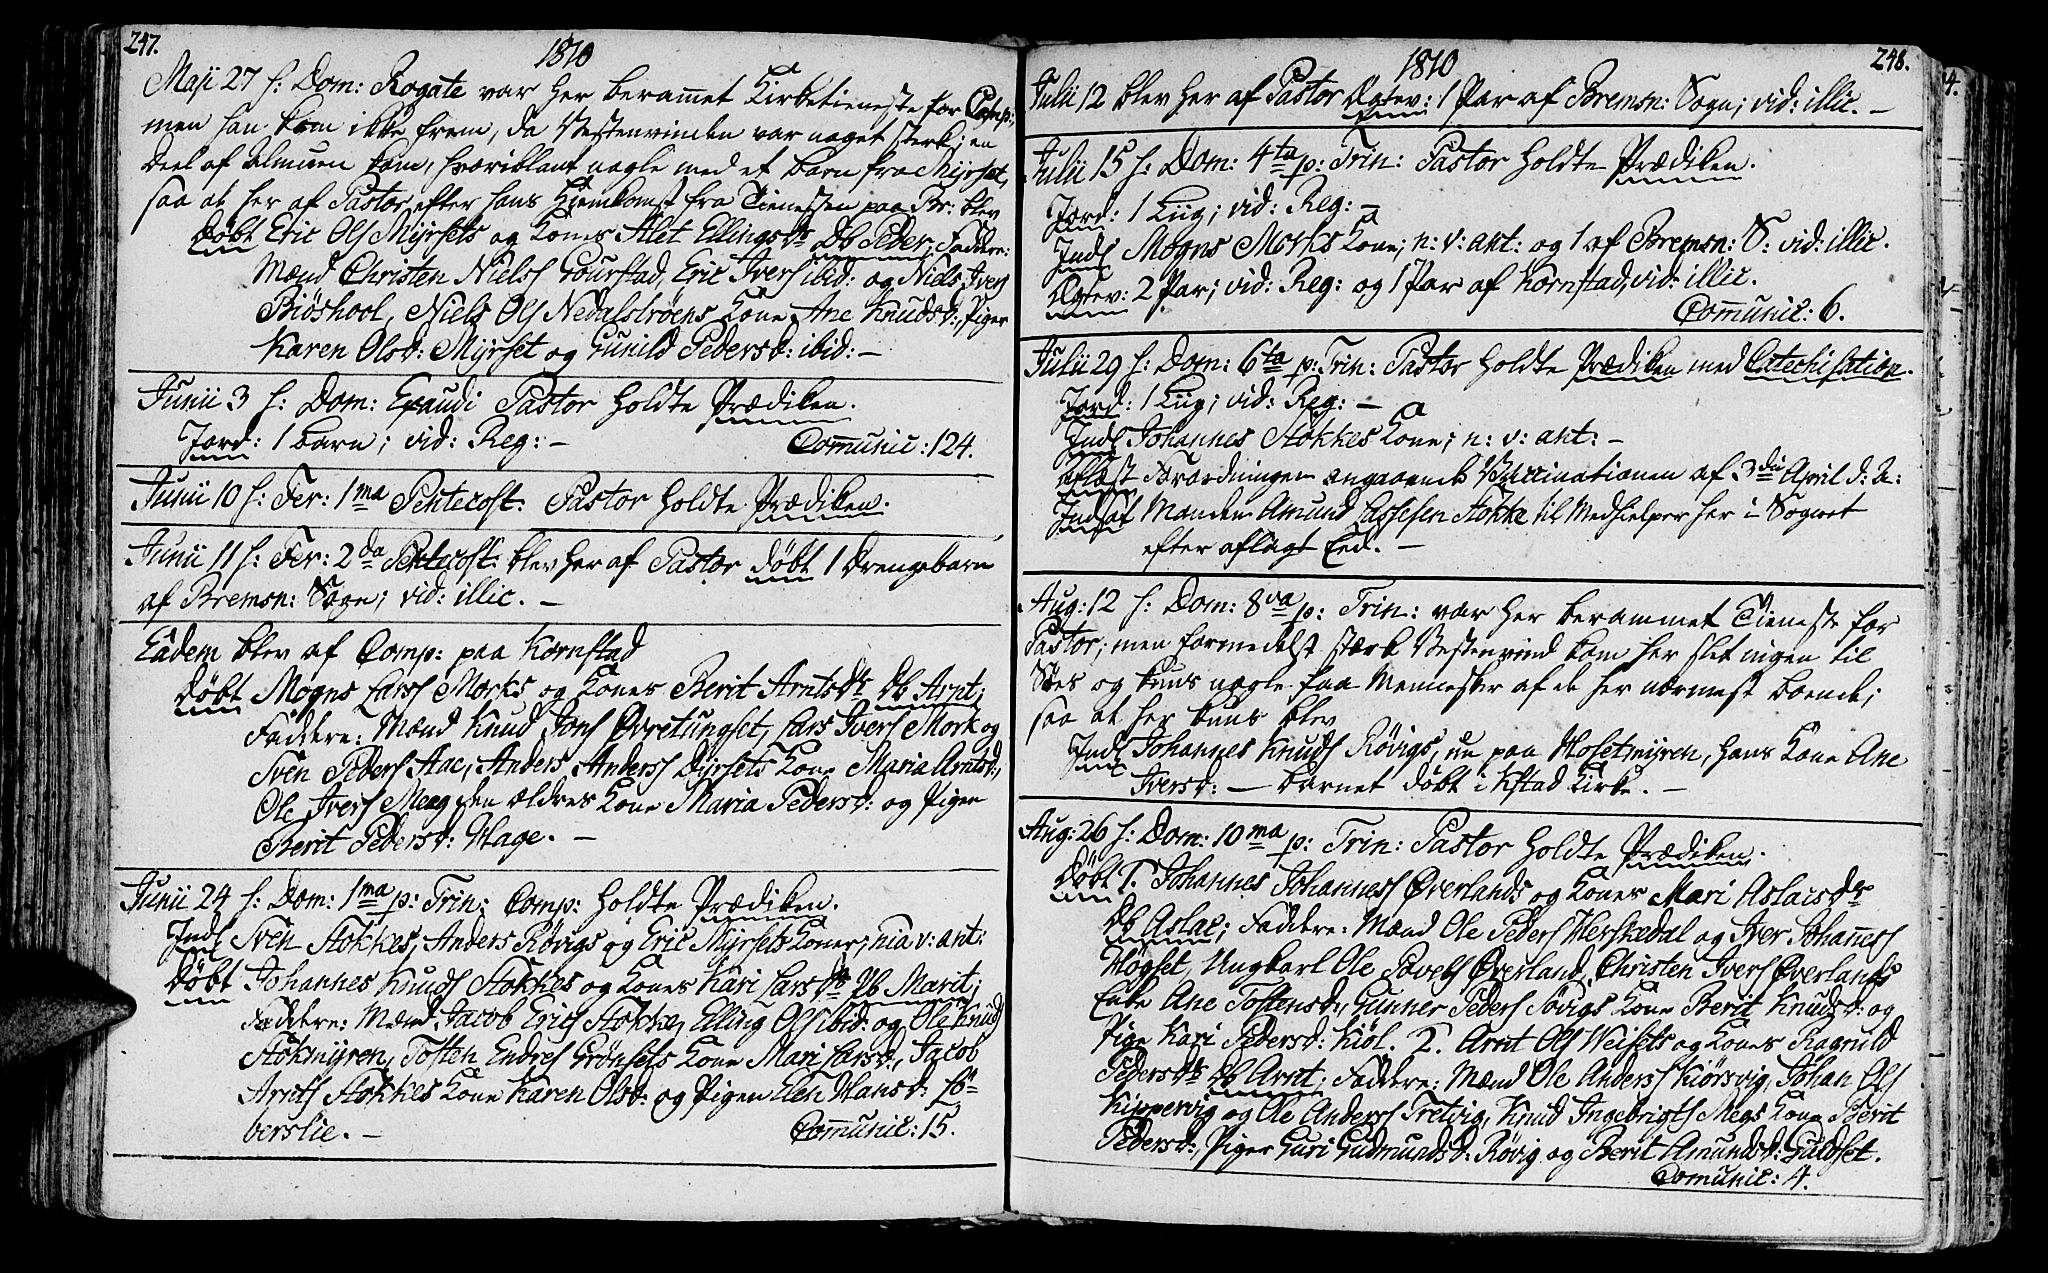 247.
1810
Maji 27 h: Dom: Rogate var her beramet Kirketieneste for Comp:,
men han kom ikke frem, da Vestenvinden var noget sterk; en
Deel af Almuen kom, hvoriblant nogle med et barn fra Myrset,
saa at her af Pastor efter hans Hiemkomst fra Tienesten paa Br: blev
Døbt Eric Ols Myrsets og Kones Alet Ellingsdr Db Peder; Faddere:
Mænd Christen Niels Gourstad, Eric Ivers ibid: og Niels Ivers
Biöskool, Niels Ols Nedalströens Kone Ane Knudsd:, Piger
Karen Olsd: Myrset og Gunild Pedersd: ibid: —
Junii 3 h: Dom: Exaudi Pastor holdte Prædiken.
Jord: 1 barn; vid: Reg: —
Comunic: 124.
Junii 10 h: Fer: 1ma Pentecost. Pastor holdte Prædiken.
Junii 11 h: Fer: 2da Pentecost: blev her af Pastor døbt 1 Drengebarn
af Bremsn: Sogn; vid: illic. —
Eadem blev af Comp: paa Kornstad
Døbt Mogns Lars Morks og Kones Berit Arntsdr Db Arnt;
Faddere: Mænd Knud Jons Øvretungset, Lars Ivers Mork og
Sven Peders Aae, Anders Anders Dyrsets Kone Maria Arntsd:,
Ole Ivers Meeg den ældres Kone Maria Pedersd: og Pigen
Berit Pedersd: Hage. —
Junii 24 h: Dom: 1ma p: Trin: Comp: holdte Prædiken.
Indl Sven Stokkes, Anders Røvigs og Eric Myrsets Koner; nia v: ant:
Døbt Johannes Knuds Stokkes og Kones Kari Larsdr Db Marit;
Faddere: Mænd Jacob Erics Stokke, Elling Ols ibid: og Ole Knuds
Stokmyren, Tosten Endres Grönsets Kone Mari Larsd:, Jacob
Arnts Stokkes Kone Karen Olsd: og Pigen Elen Hansd: Lö-
berslie. —
Comunic: 15.
248.
1810
Julii 12 blev her af Pastor Ægtev: 1 Par af Bremsn: Sogn; vid: illic. —
Julii 15 h: Dom: 4ta p: Trin: Pastor holdte Prædiken.
Jord: 1 Liig; vid: Reg: —
Indl Mogns Morks Kone; n: v: ant: og 1 af Bremsn: S: vid: illic.
Ægtev: 2 Par; vid: Reg: og 1 Par af Kornstad, vid: illic.
Comunic: 6.
Julii 29 h: Dom: 6ta p: Trin: Pastor holdte Prædiken med Catechisation.
Jord: 1 Liig; vid: Reg: —
Indl Johannes Stokkes Kone; n: v: ant: —
Aflæst Forordningen angaaende Vaccinationen af 3die April d: A:
Indsat Manden Amund Lassesen Stokke til Medhielper her i Sognet
efter aflagt Eed. —
Aug: 12 h: Dom: 8va p: Trin: var her berammet Tieneste for
Pastor; men formedelst stærk Vestenvind kom her slet ingen til
Søes og kuns nogle faa Mennesker af de her nærmest boende;
saa at her kuns blev
Indl Johannes Knuds Røvigs, nu paa Holetmyren, hans Kone Ane
Iversd: — barnet døbt i Kstad Kirke. —
Aug: 26 h: Dom: 10ma p: Trin: Pastor holdte Prædiken.
Døbt 1. Johannes Johannes Øverlands og Kones Mari Aslacsdr
Db Aslac; Faddere: Mænd Ole Peders Herskedal og Iver Johannes
Högset, Ungkarl Ole Povels Øverland, Christen Ivers Øverlands
Enke Ane Tostensd:, Gunner Peders Søvigs Kone Berit Knudsd: og
Pige Kari Pedersd: Kiöl. 2. Arnt Ols Weisets og Kones Ragnild
Pedersdr Db Arnt; Faddere: Mænd Ole Anders Kiörsvig, Johan Ols
Kippervig og Ole Anders Tretvig, Knud Ingebrigts Megs Kone Berit
Pedersd:, Piger Guri Gudmundsd: Røvig og Berit Amundsd: Guldset.
Comunic: 4.